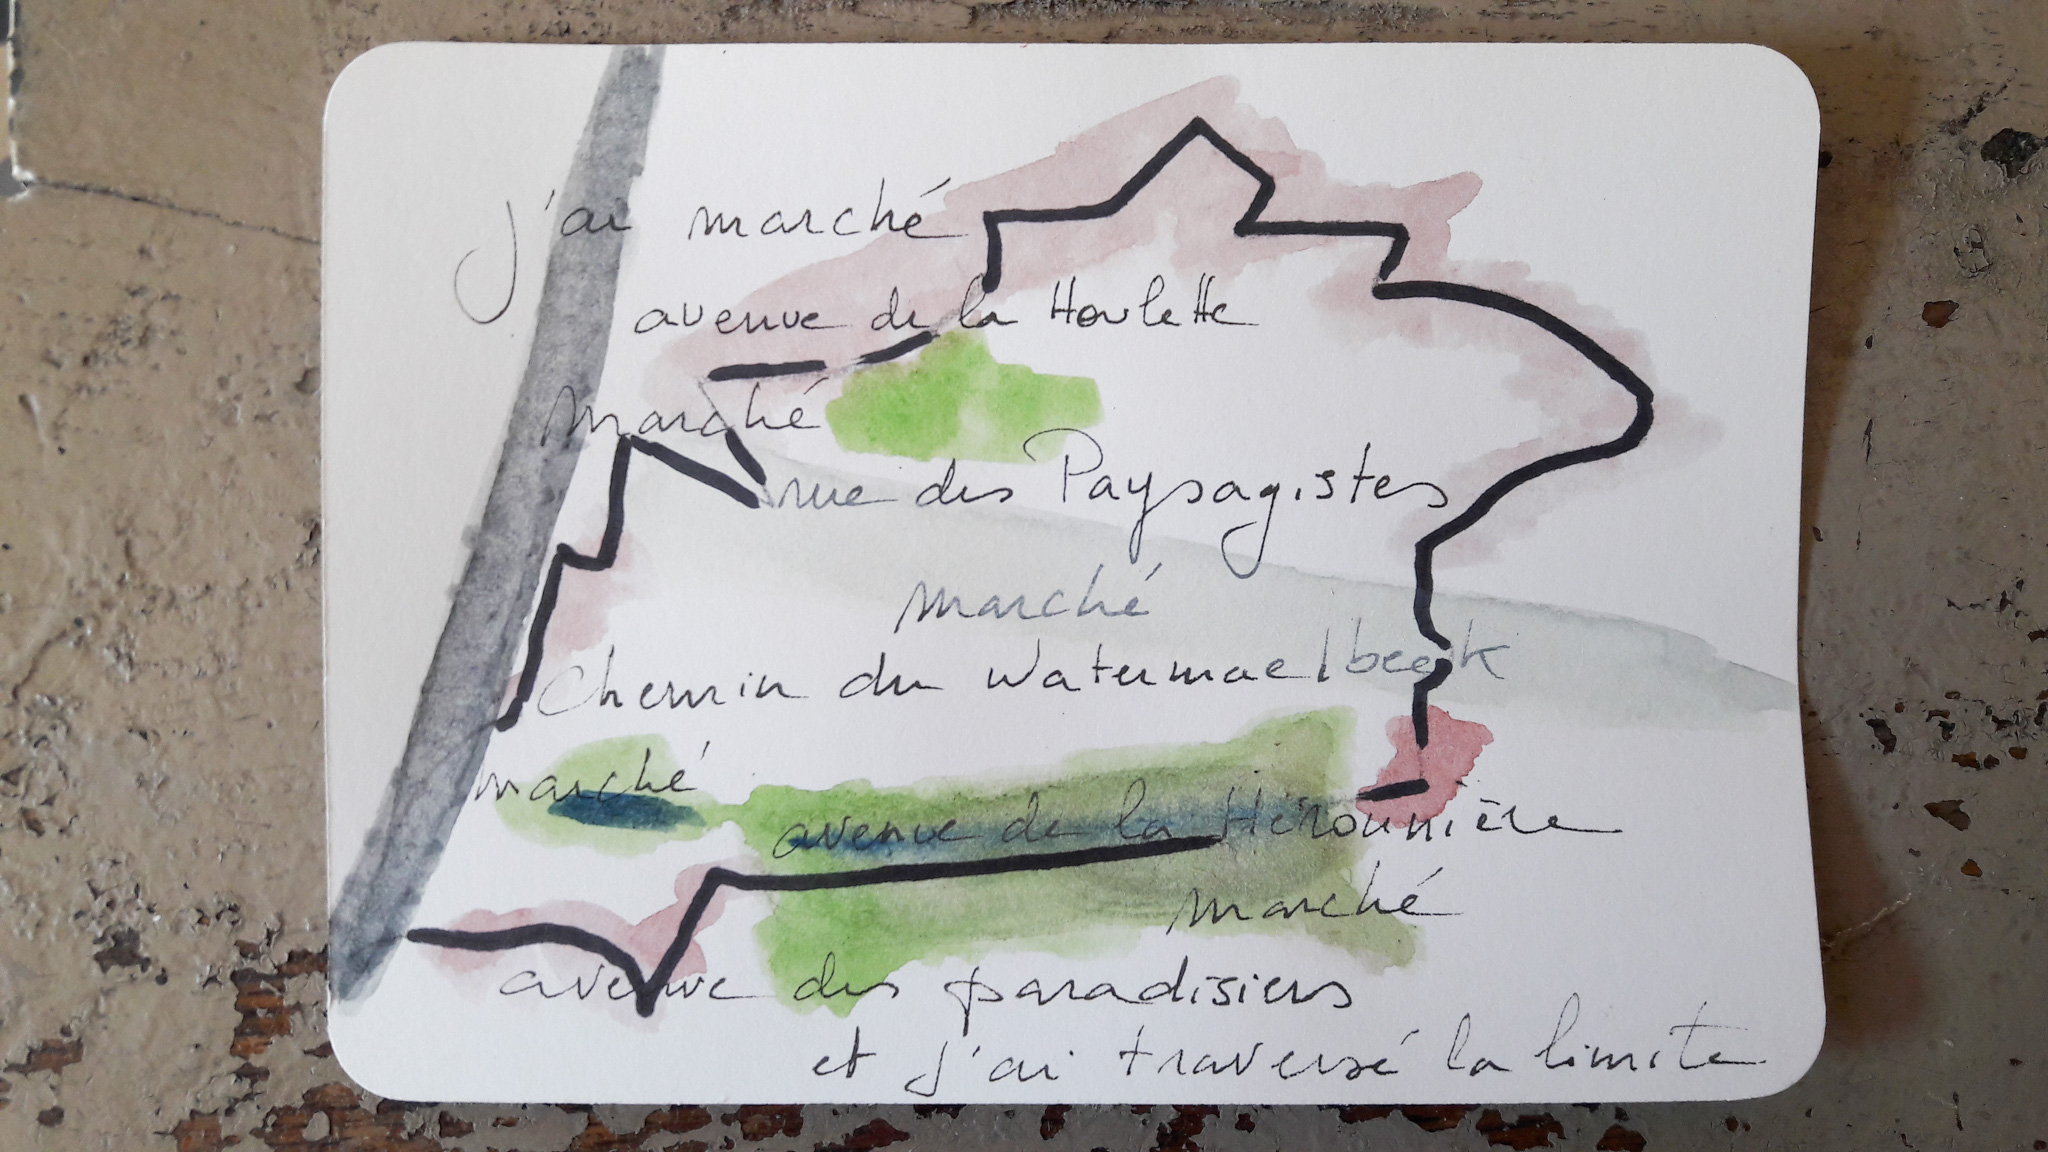 j'ai marché
avenue de la Houlette
marché
rue des Paysagistes
marché
Chemin du Watermaelbeek
marché
avenue de la Héronnière
marché
avenue des paradisiers
et j'ai traversé la limite